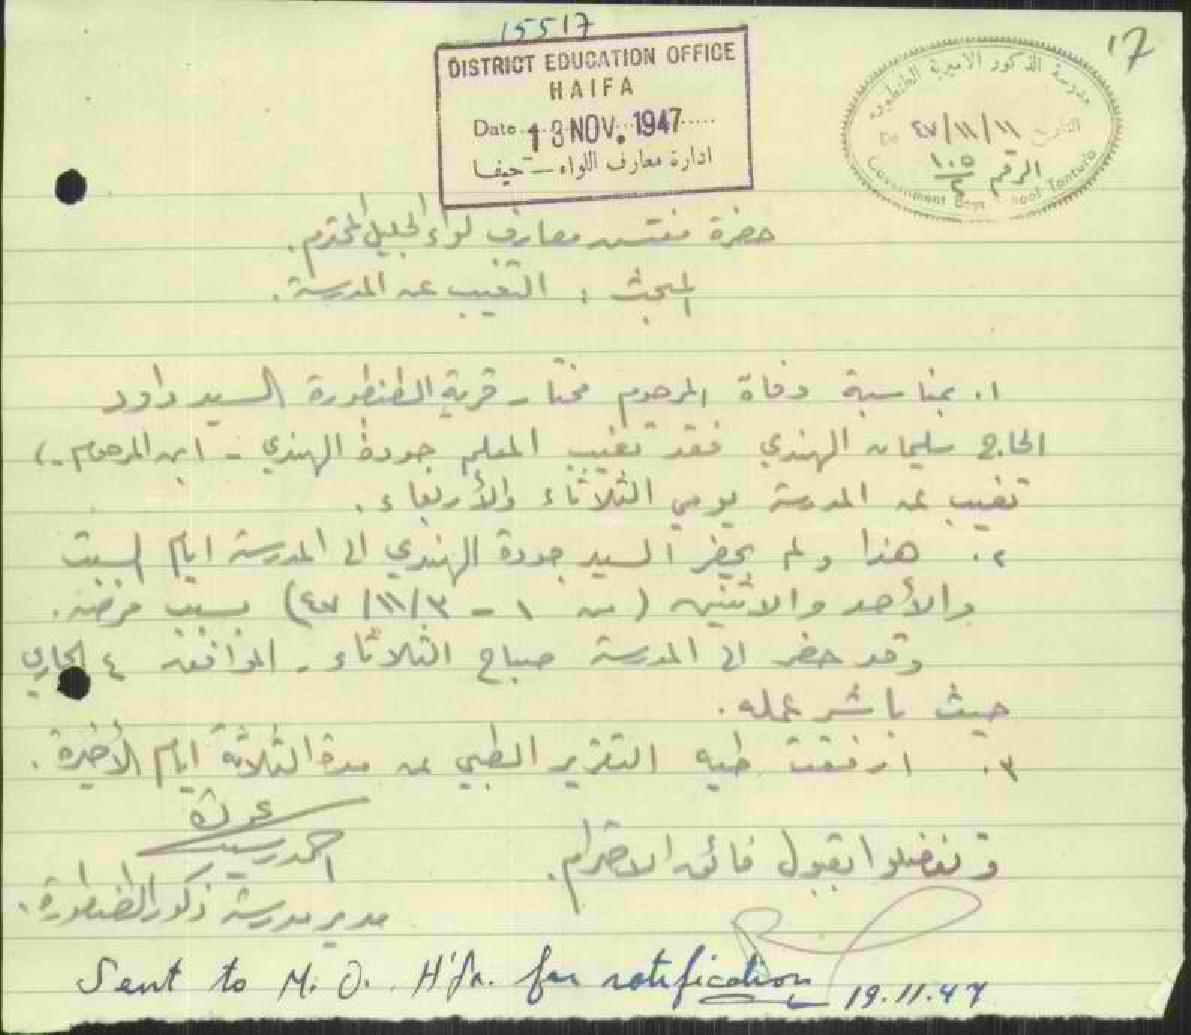 15517
17
DISTRICT EDUCATION OFFICE
HAIFA
Date 13 NOV. 1947
ادارة معارف اللواء – حيفا
مدرسة الذكور الاميرية الطنطورة
التاريخ ٤٧/١١/١١ De
الرقم ١٠٥/٤
Government Boys School Tantura
حضرة مفتش معارف لواء الجليل المحترم.
المبحث : التغيب عن المدرسة.
١. بمناسبة وفاة المرحوم مختار قرية الطنطورة السيد داود
الحاج سليمان الهندي فقد تغيب المعلم جودة الهندي - ابن المرحوم -
تغيب عن المدرسة يومي الثلاثاء والأربعاء.
٢. هذا ولم يحضر السيد جودة الهندي الى المدرسة ايام السبت
والأحد والاثنين (من ١ - ٤٧/١١/٣) بسبب مرضه.
وقد حضر الى المدرسة صباح الثلاثاء - الموافقة ٤ الجاري
حيث باشر عمله.
٣. ارفقت طيه التقرير الطبي عن مدة الثلاثة ايام الأخيرة.
وتفضلوا بقبول فائق الاحترام.
احمد
مدير مدرسة ذكور الطنطورة.
Sent to M. O. H'fa. for notification
19.11.47